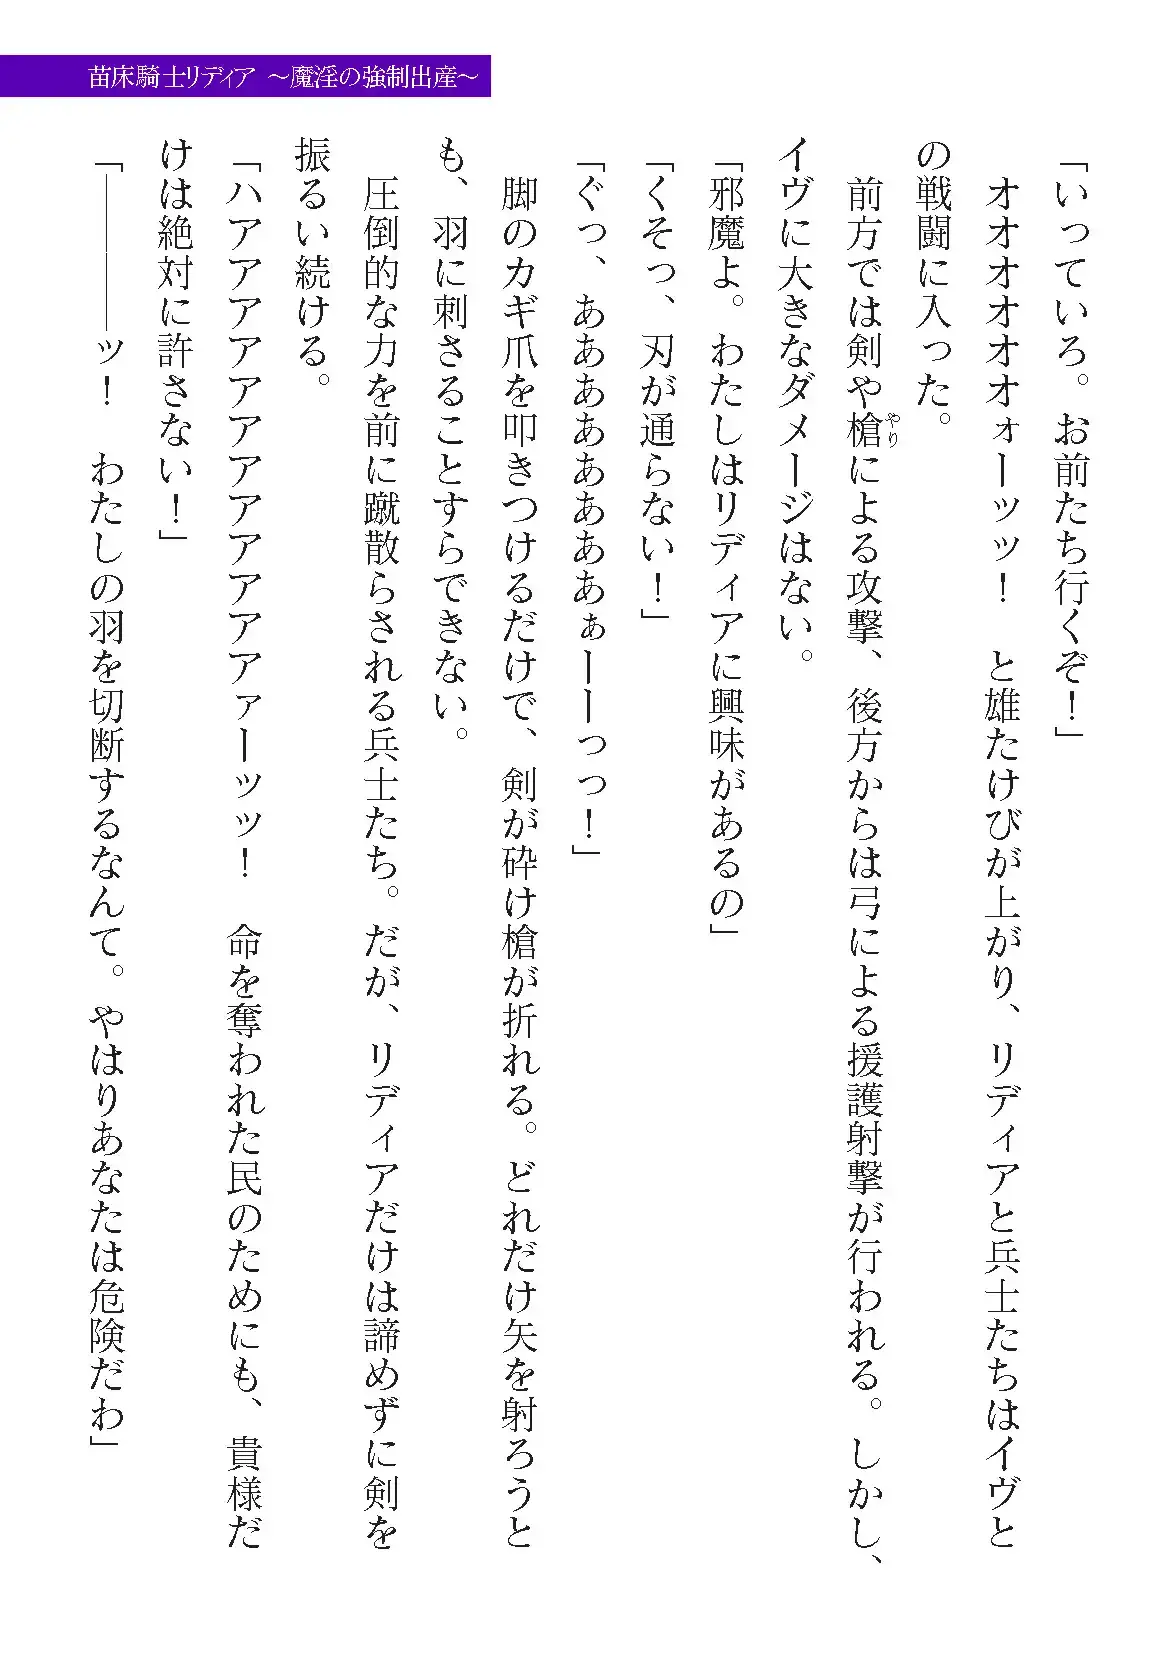 苗床騎士リディア ～魔淫の強制出産～
「いっていろ。お前たち行くぞ！」
　オオオオオォーッッ！　と雄たけびが上がり、リディアと兵士たちはイヴと
の戦闘に入った。
　前方では剣や槍やりによる攻撃、後方からは弓による援護射撃が行われる。しかし、
イヴに大きなダメージはない。
「邪魔よ。わたしはリディアに興味があるの」
「くそっ、刃が通らない！」
「ぐっ、あああああああぁーーっっ！」
　脚のカギ爪を叩きつけるだけで、剣が砕け槍が折れる。どれだけ矢を射ろうと
も、羽に刺さることすらできない。
　圧倒的な力を前に蹴散らされる兵士たち。だが、リディアだけは諦めずに剣を
振るい続ける。
「ハアアアアアアアアアアアァーッッ！　命を奪われた民のためにも、貴様だ
けは絶対に許さない！」
「――――ッ！　わたしの羽を切断するなんて。やはりあなたは危険だわ」